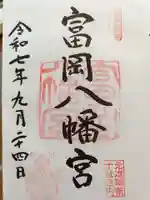 富岡八幡宮
令和七年九月二十四日